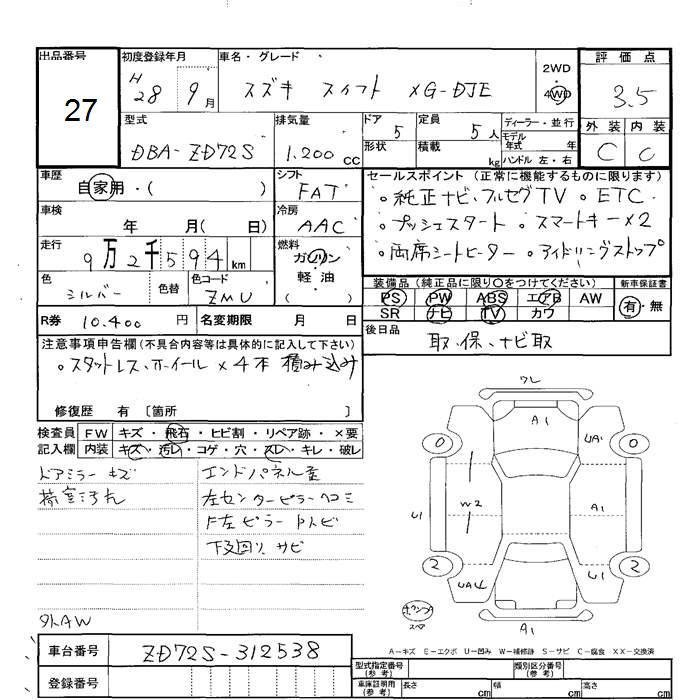 出品番号 初度登録年月 車名・グレード 2WD 評価点
27 H28 9月 スズキ スイフト XG-DJE 4WD 3.5
型式 排気量 ドア 5 定員 5人 ディーラー・並行 外装 内装
DBA-ZD72S 1.200cc 形状 積載 kg モデル年式 年 C C
ハンドル 左・右
車歴 シフト セールスポイント(正常に機能するものに限ります)
自家用・( ) FAT 。純正ナビ、フルセグTV 。ETC
車検 年 月( 日) 冷房 AAC 。プッシュスタート 。スマートキー×2
走行 9万2千594km 燃料 ガソリン・軽油 。両席シートヒーター 。アイドリングストップ
色 シルバー 色替 色コード ZMU 装備品(純正品に限り○をつけてください) 新車保証書
PS PW ABS エアB AW 有・無
SR ナビ TV カワ
R券 10.400円 名変期限 月 日 後日品 取、保、ナビ取
注意事項申告欄(不具合内容等は具体的に記入して下さい)
。スタットレス、ホイール×4本 積み込み
修復歴 有〔箇所 〕
検査員 FW キズ・飛石・ヒビ割・リペア跡・×要
記入欄 内装 キズ・汚レ・コゲ・穴・スレ・キレ・破レ
ドアミラー キズ エンドパネル歪
荷室汚れ 左センターピラーヘコミ
F左ピラー
下回り サビ
外AW
ワレ
A1
0 UA1 0
U1 W2 A1
2 UA4 U1 2
スペア A1
A-キズ E-エクボ U-凹み W-補修跡 S-サビ C-腐食 XX-交換済
車台番号 ZD72S-312538
型式指定番号(参考) 類別区分番号(参考)
登録番号 車庫証明用(参考) 長さ cm 幅 cm 高さ cm